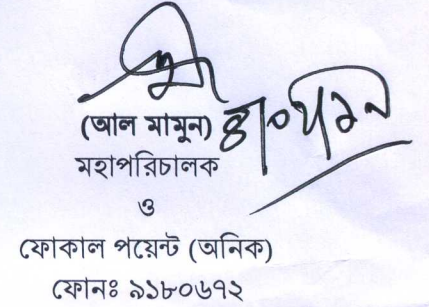 (আল মামুন)
মহাপরিচালক
ও
ফোকাল পয়েন্ট (অনিক)
ফোনঃ ৯১৮০৬৭২